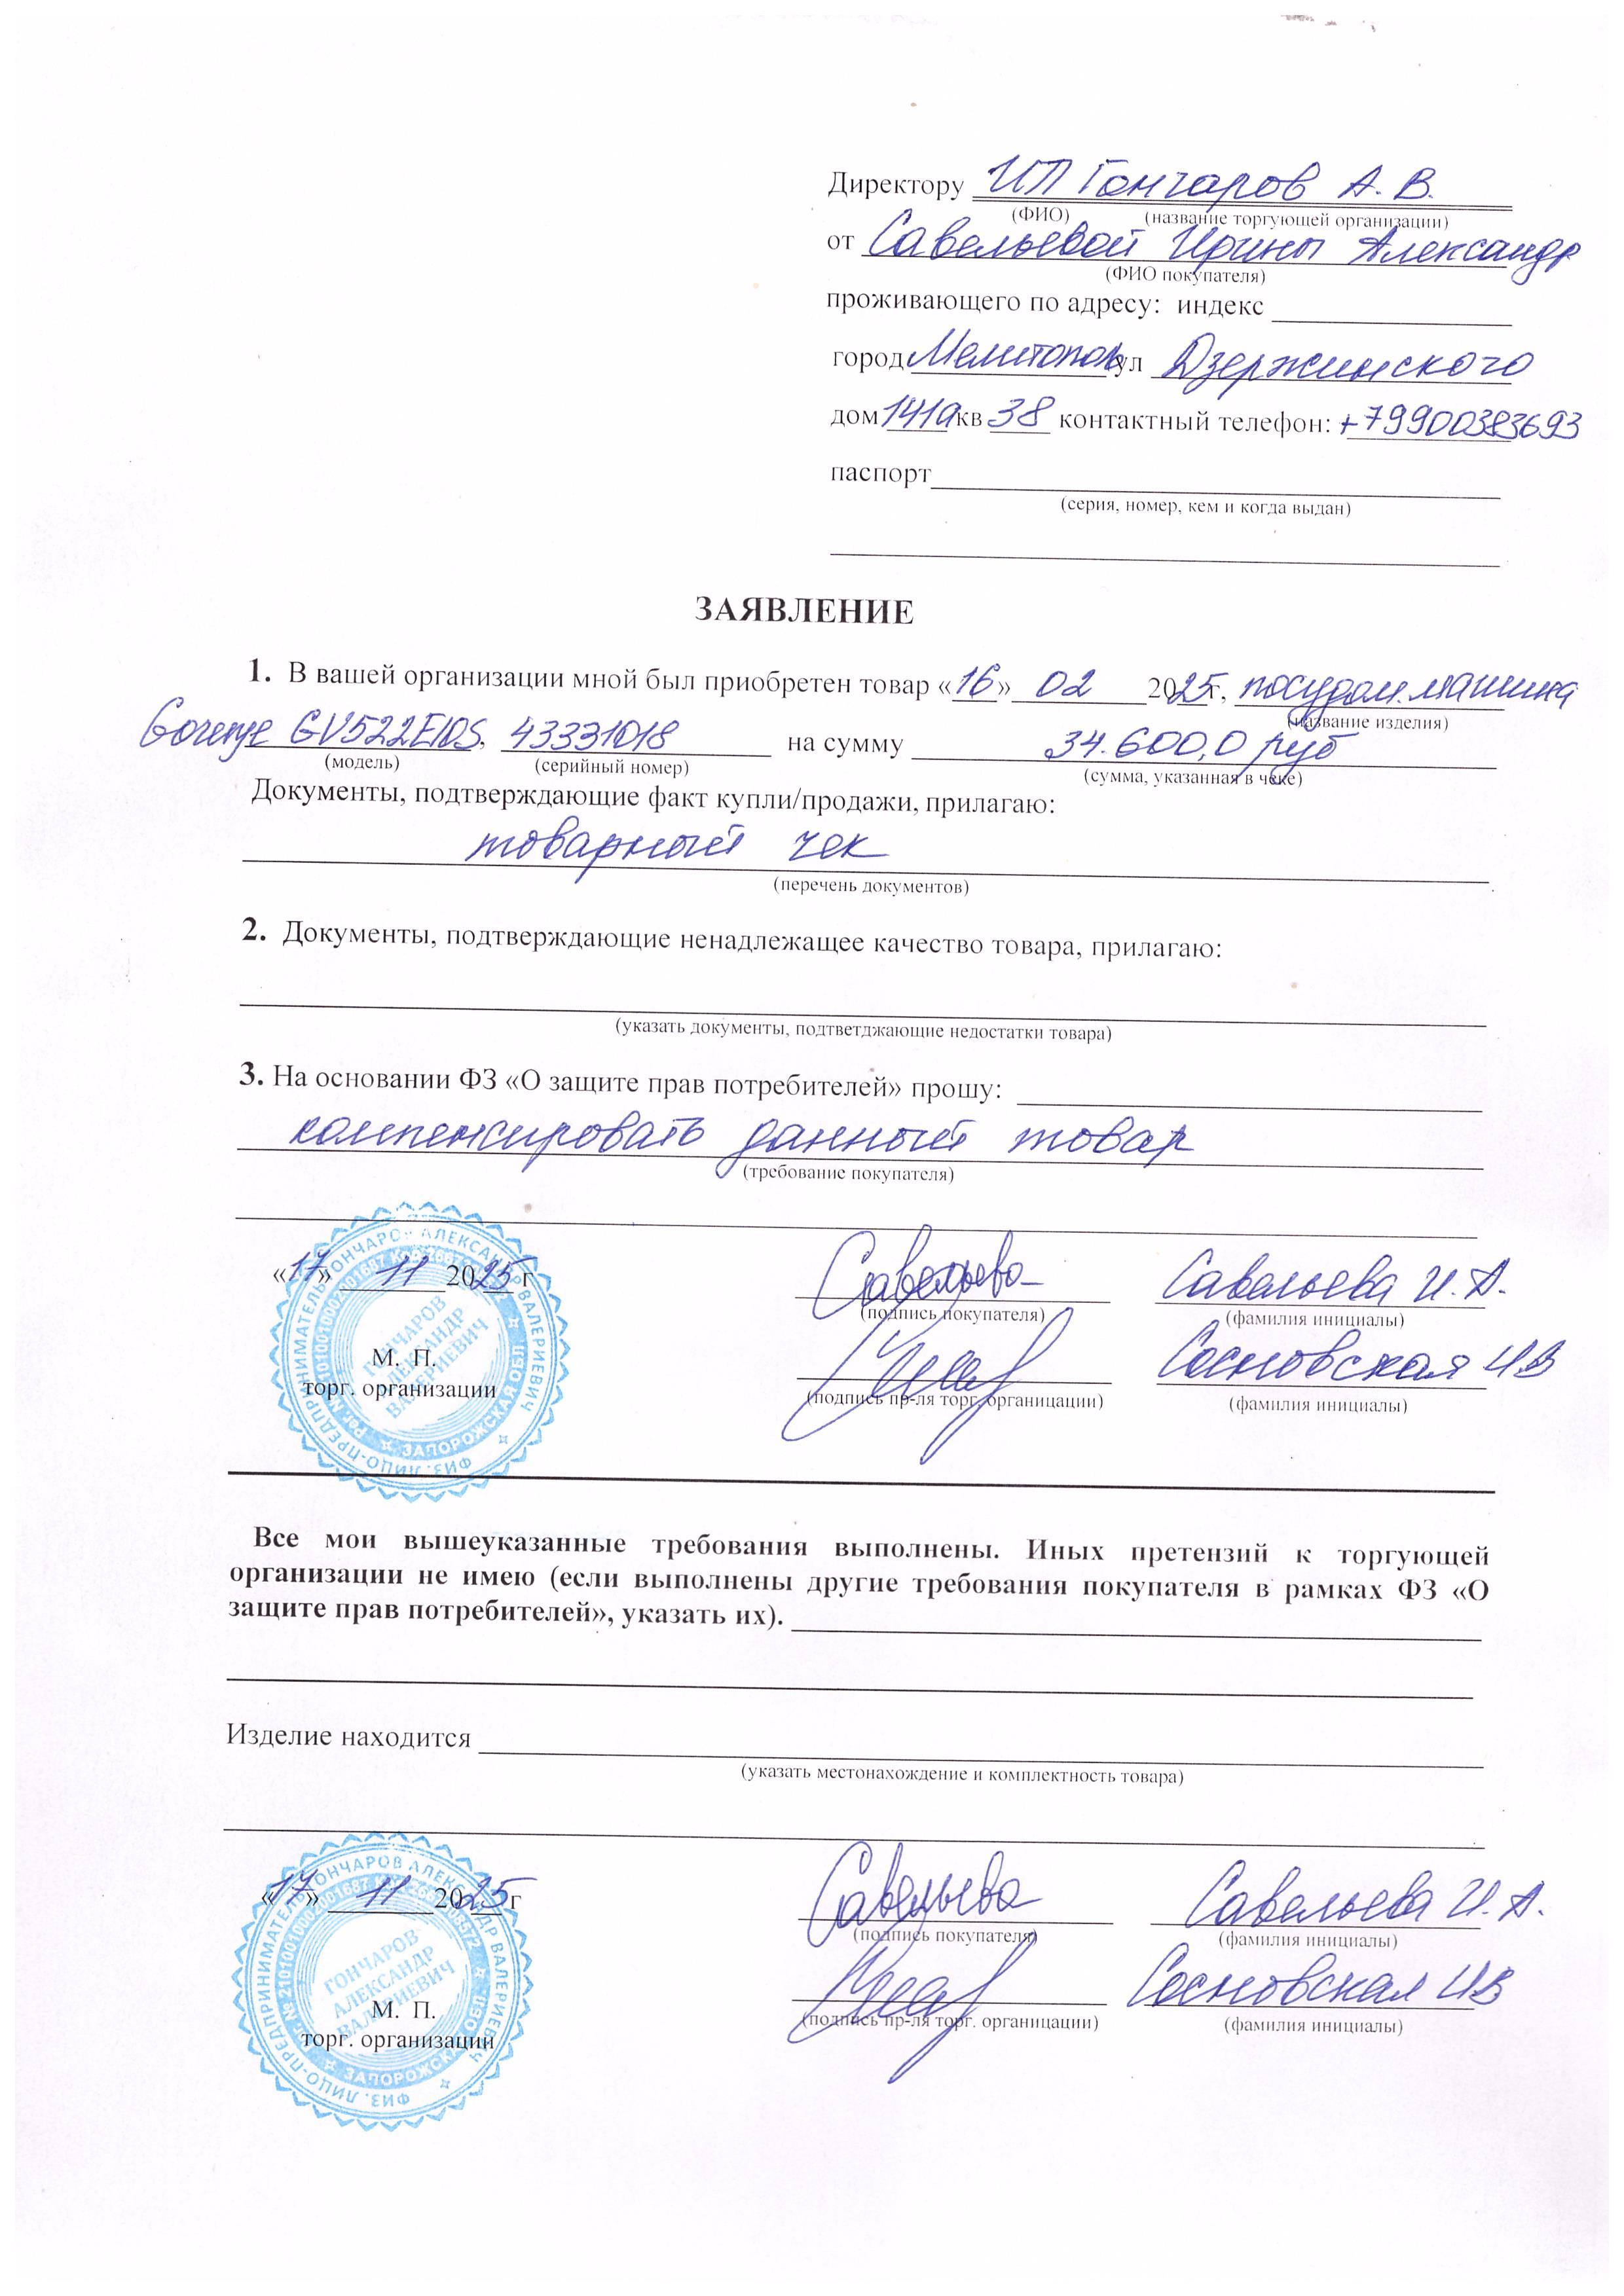 Директору ИП Гончаров А. В.
(ФИО) (название торгующей организации)
от Савельевой Ирины Александр
(ФИО покупателя)
проживающего по адресу: индекс
город Мелитополь ул Дзержинского
дом 141а кв 38 контактный телефон: +79900383693
паспорт
(серия, номер, кем и когда выдан)
ЗАЯВЛЕНИЕ
1. В вашей организации мной был приобретен товар «16» 02 2025г, посудом.машина
(название изделия)
Gorenje GV522E10S, 43331018 на сумму 34.600,0 руб
(модель) (серийный номер) (сумма, указанная в чеке)
Документы, подтверждающие факт купли/продажи, прилагаю:
товарный чек
(перечень документов)
2. Документы, подтверждающие ненадлежащее качество товара, прилагаю:
(указать документы, подтветджающие недостатки товара)
3. На основании ФЗ «О защите прав потребителей» прошу:
компенсировать данный товар
(требование покупателя)
«17» 11 2025 г Савельева Савельева И. А.
(подпись покупателя) (фамилия инициалы)
М. П. Сосновская ИВ
торг. организации (подпись пр-ля торг. органицации) (фамилия инициалы)
ФИЗ. ЛИЦО-ПРЕДПРИНИМАТЕЛЬ ГОНЧАРОВ АЛЕКСАНДР ВАЛЕРИЕВИЧ
ЗАПОРОЖСКАЯ ОБЛ
ГОНЧАРОВ
АЛЕКСАНДР
ВАЛЕРИЕВИЧ
Все мои вышеуказанные требования выполнены. Иных претензий к торгующей
организации не имею (если выполнены другие требования покупателя в рамках ФЗ «О
защите прав потребителей», указать их).
Изделие находится
(указать местонахождение и комплектность товара)
«17» 11 2025 г Савельева Савельева И. А.
(подпись покупателя) (фамилия инициалы)
М. П. Сосновская ИВ
торг. организации (подпись пр-ля торг. органицации) (фамилия инициалы)
ФИЗ. ЛИЦО-ПРЕДПРИНИМАТЕЛЬ ГОНЧАРОВ АЛЕКСАНДР ВАЛЕРИЕВИЧ
ЗАПОРОЖСКАЯ ОБЛ
ГОНЧАРОВ
АЛЕКСАНДР
ВАЛЕРИЕВИЧ